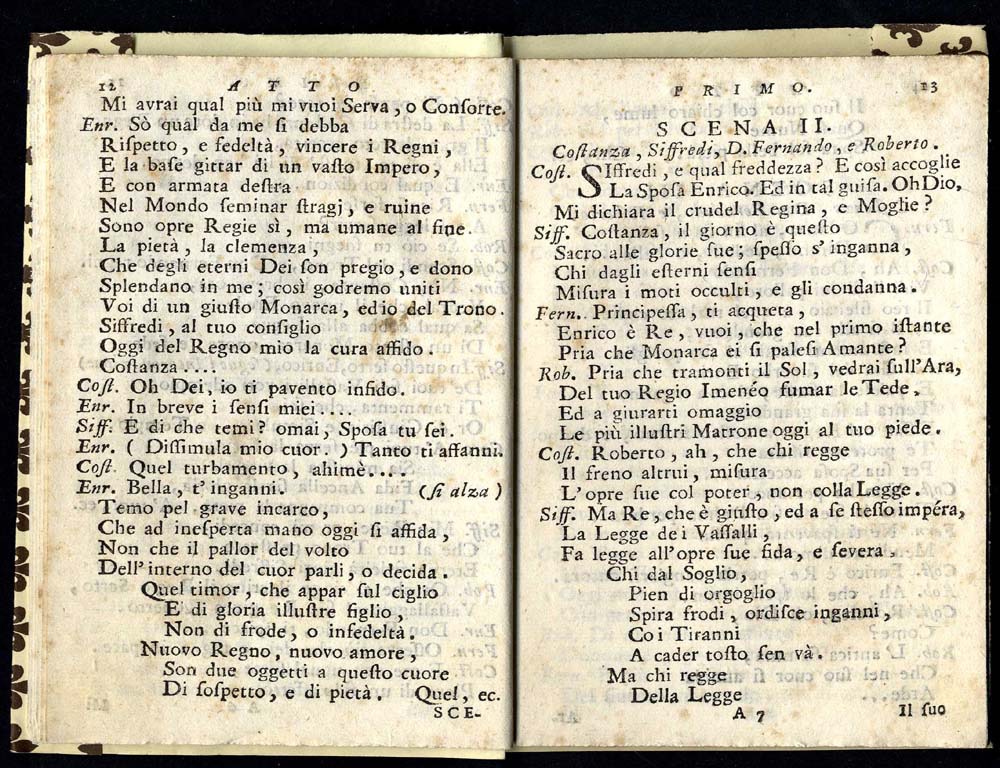 12 ATTO
Mi avrai qual più mi vuoi Serva, o Conſorte.
Enr. Sò qual da me ſi debba
Riſpetto, e fedeltà, vincere i Regni,
E la baſe gittar di un vaſto Impero,
E con armata deſtra
Nel Mondo ſeminar ſtragi, e ruine
Sono opre Regie sì, ma umane al fine.
La pietà, la clemenza,
Che degli eterni Dei ſon pregio, e dono
Splendano in me; così godremo uniti
Voi di un giuſto Monarca, ed io del Trono.
Siffredi, al tuo conſiglio
Oggi del Regno mio la cura affido.
Coſtanza....
Coſt. Oh Dei, io ti pavento infido.
Enr. In breve i ſenſi miei....
Siff. E di che temi? omai, Spoſa tu ſei.
Enr. (Diſſimula mio cuor.) Tanto ti affanni.
Coſt. Quel turbamento, ahimè....
Enr. Bella, t'inganni. (ſi alza)
Temo pel grave incarco,
Che ad ineſperta mano oggi ſi affida,
Non che il pallor del volto
Dell'interno del cuor parli, o decida.
Quel timor, che appar ſul ciglio
E di gloria illuſtre figlio,
Non di frode, o infedeltà.
Nuovo Regno, nuovo amore,
Son due oggetti a queſto cuore
Di ſoſpetto, e di pietà. Quel, ec.
SCE-
PRIMO. 13
SCENA II.
Coſtanza, Siffredi, D. Fernando, e Roberto.
Coſt. SIffredi, e qual freddezza? E così accoglie
La Spoſa Enrico. Ed in tal guiſa. Oh Dio,
Mi dichiara il crudel Regina, e Moglie?
Siff. Coſtanza, il giorno è queſto
Sacro alle glorie ſue; ſpeſſo s'inganna,
Chi dagli eſterni ſenſi
Miſura i moti occulti, e gli condanna.
Fern. Principeſſa, ti acqueta,
Enrico è Re, vuoi, che nel primo iſtante
Pria che Monarca ei ſi paleſi Amante?
Rob. Pria che tramonti il Sol, vedrai ſull'Ara,
Del tuo Regio Imenéo fumar le Tede,
Ed a giurarti omaggio
Le più illuſtri Matrone oggi al tuo piede.
Coſt. Roberto, ah, che chi regge
Il freno altrui, miſura
L'opre ſue col poter, non colla Legge.
Siff. Ma Re, che è giuſto, ed a ſe ſteſſo impéra,
La Legge dei Vaſſalli,
Fa legge all'opre ſue fida, e ſevera,
Chi dal Soglio,
Pien di orgoglio
Spira frodi, ordiſce inganni,
Co i Tiranni
A cader toſto ſen và.
Ma chi regge
Della Legge
A 7 Il ſuo